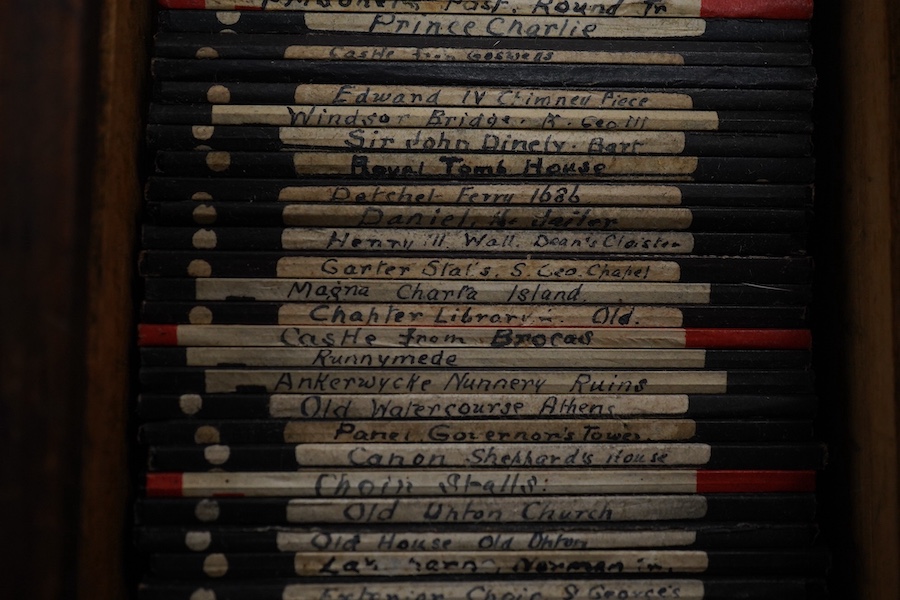 Prisoners Past. Round Tr
Prince Charlie
Castle from Goswells
Edward IV Chimney Piece
Windsor Bridge. K. Geo III
Sir John Dinely. Bart
Royal Tomb House
Datchet Ferry 1686
Daniel, the
Henry III Wall. Dean's Cloister
Garter Stalls. S. Geo. Chapel
Magna Charta Island.
Chapter Library. Old.
Castle from Brocas
Runnymede
Ankerwycke Nunnery Ruins
Old Watercourse Athens
Panel. Governor's Tower.
Canon Sheppard's House
Choir Stalls:
Old Upton Church
Old House Old Upton
Norman
Exterior Choir S George's